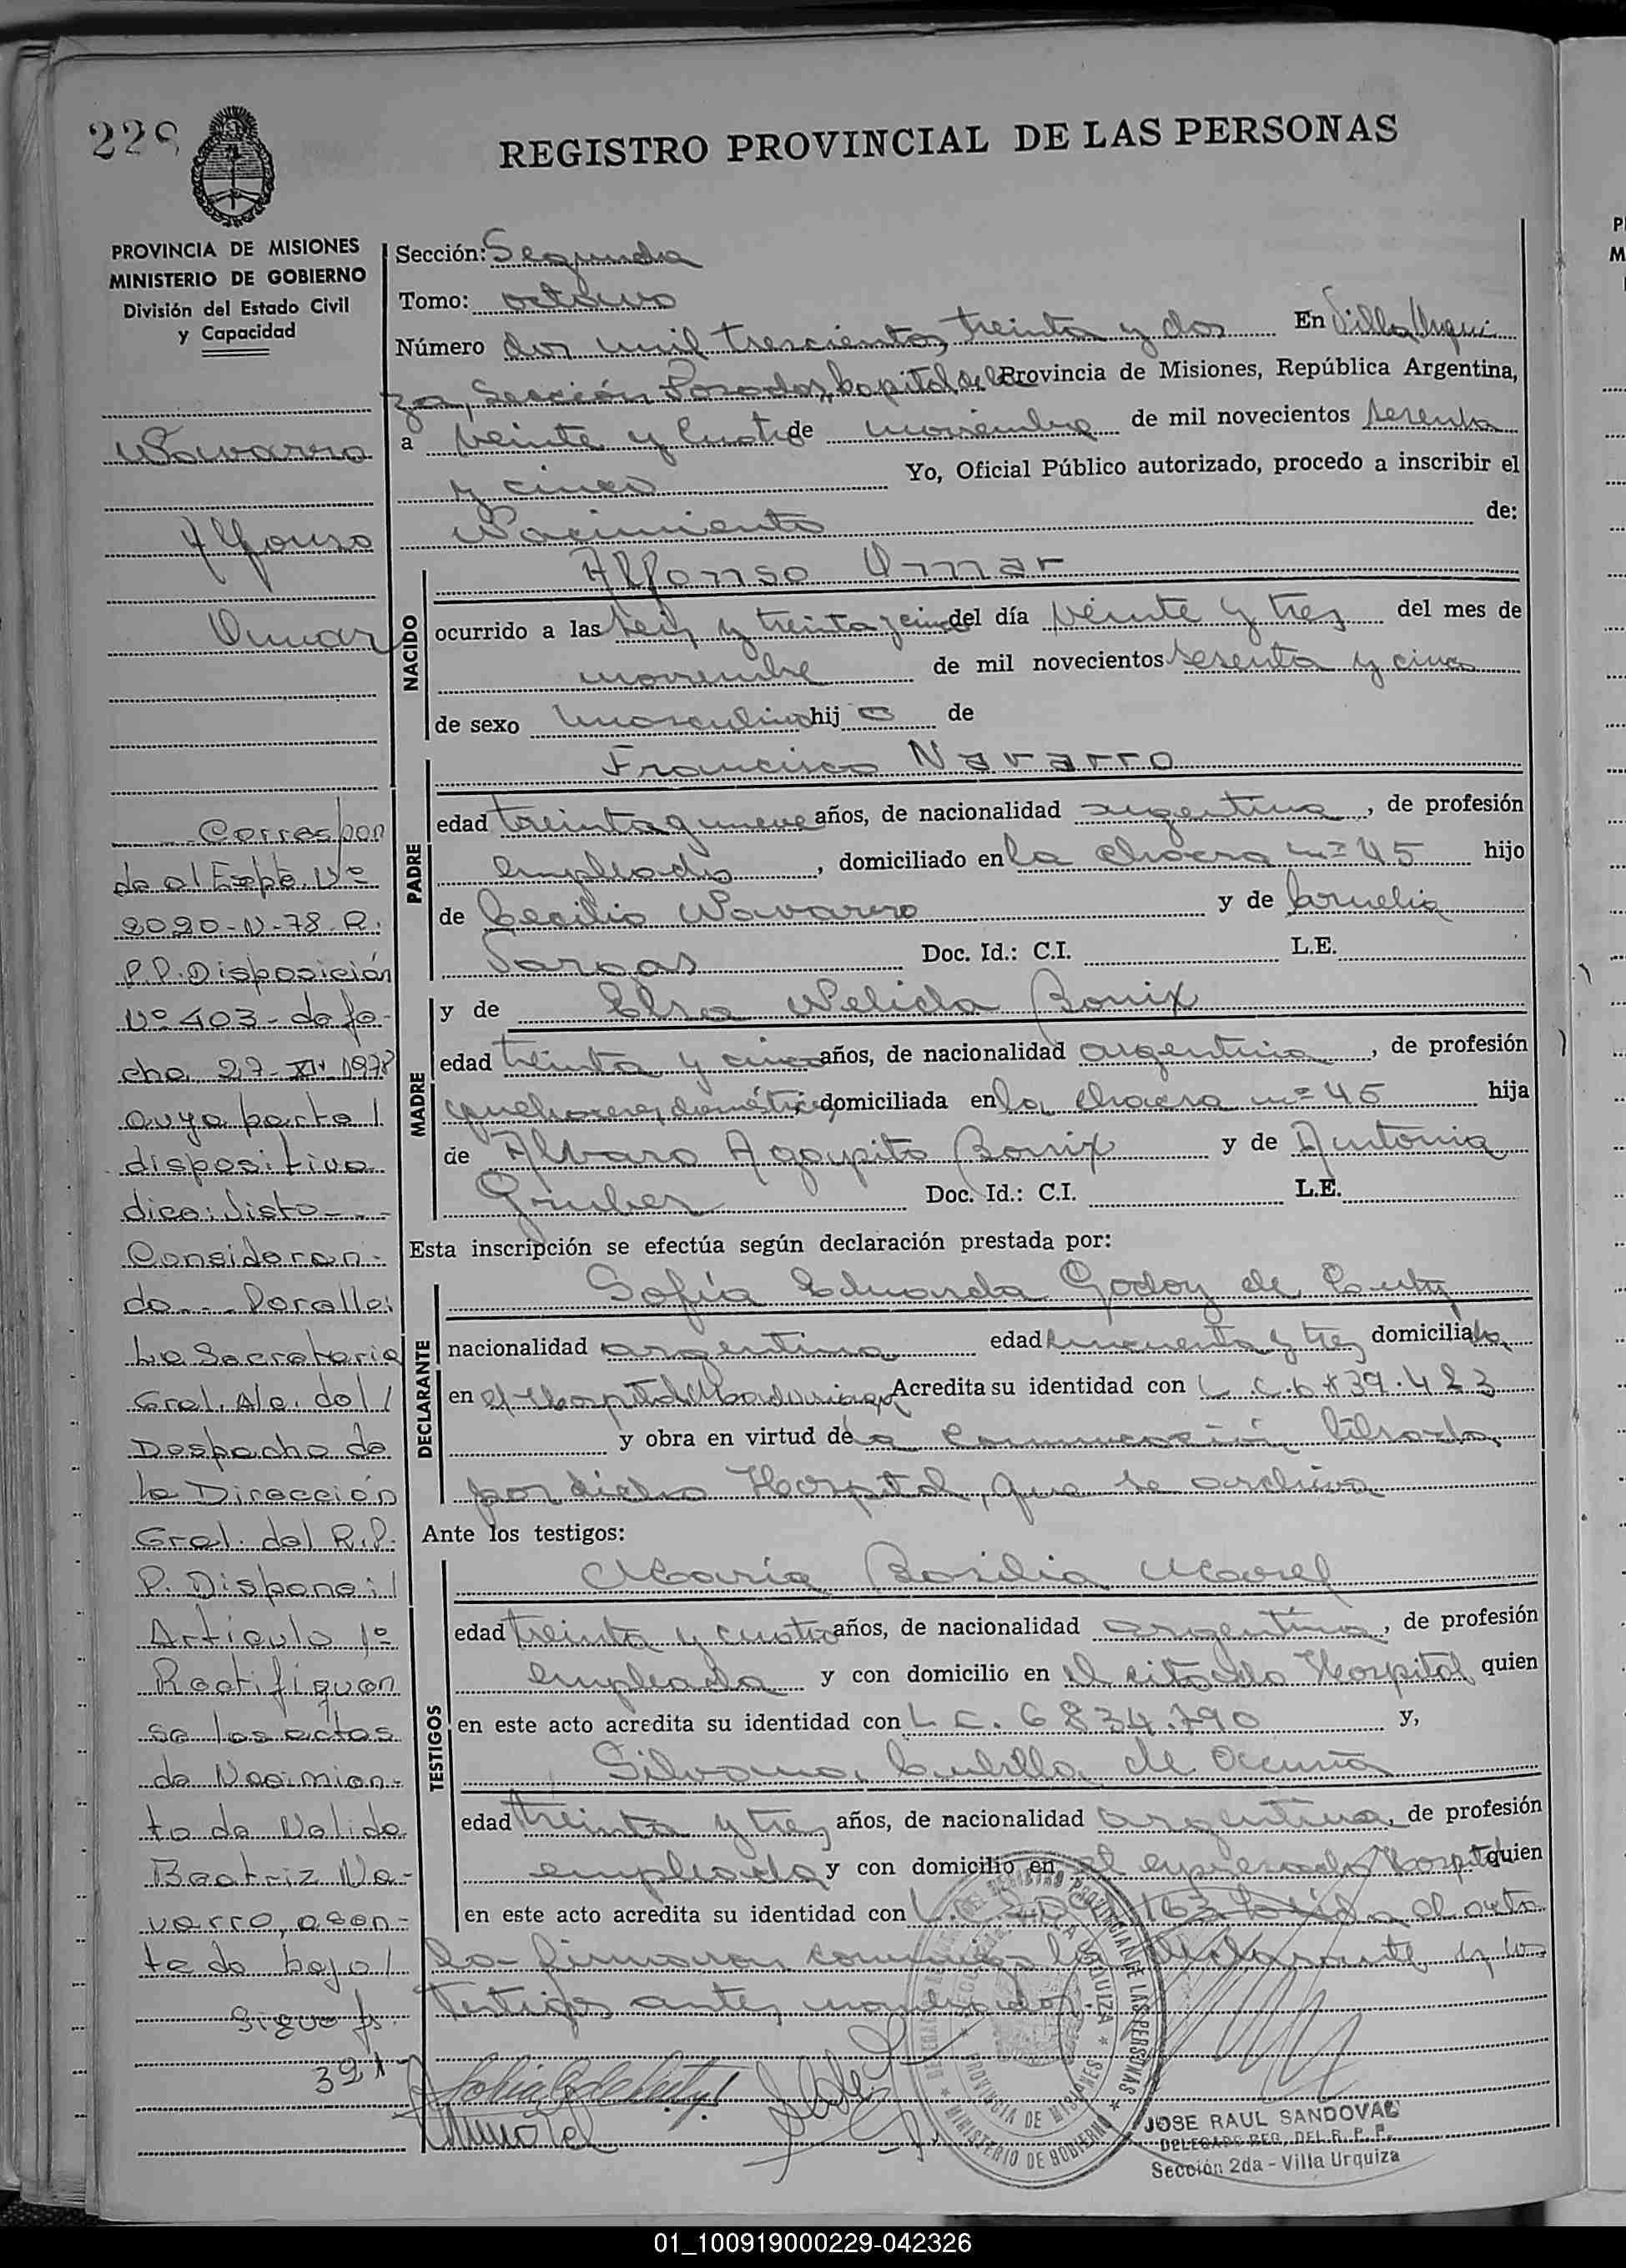 229
REGISTRO PROVINCIAL DE LAS PERSONAS
PROVINCIA DE MISIONES
MINISTERIO DE GOBIERNO
División del Estado Civil
y Capacidad
Navarro
Alfonso
Omar
Correspon
de al Expte. Nº
2020-N-78-R.
P.P. Disposición
Nº 403- de fe-
cha 27-XII-1978
cuya parte
dispositiva
dice: Visto - - -
Consideran-
do - - Por ello:
La Secretaria
Gral. A/c. del
Despacho de
la Dirección
Gral. del R.P.
P. Dispone:
Artículo 1º
Rectifiquen
se las actas
de Nacimien-
to de Nelida
Beatriz Na-
varro, asen-
tada bajo
Sigue fs.
391
Sección: Segunda
Tomo: octavo
Número dos mil trescientos treinta y dos En Villa Urqui
za, Sección Posadas, Capital de la Provincia de Misiones, República Argentina,
a veinte y cuatro de noviembre de mil novecientos sesenta
y cinco Yo, Oficial Público autorizado, procedo a inscribir el
Nacimiento de:
NACIDO
Alfonso Omar
ocurrido a las seis y treinta y cinco del día veinte y tres del mes de
noviembre de mil novecientos sesenta y cinco
de sexo masculino hijo de
PADRE
Francisco Navarro
edad treinta y nueve años, de nacionalidad argentina, de profesión
empleado, domiciliado en la chacra nº 45 hijo
de Cecilio Navarro y de Carmelia
Vargas Doc. Id.: C.I. L.E.
MADRE
y de Elsa Nelida Bonix
edad treinta y cinco años, de nacionalidad argentina, de profesión
quehaceres domésticos, domiciliada en la chacra nº 45 hija
de Alvaro Agapito Bonix y de Antonia
Gruber Doc. Id.: C.I. L.E.
Esta inscripción se efectúa según declaración prestada por:
DECLARANTE
Sofía Eduarda Godoy de
nacionalidad argentina edad cincuenta y tres domiciliada
en el Hospital Madariaga Acredita su identidad con L.C. 39.483
y obra en virtud de la comunicación librada
por dicho Hospital, que se archiva
Ante los testigos:
TESTIGOS
María Basilia Morel
edad treinta y cuatro años, de nacionalidad argentina, de profesión
empleada y con domicilio en el citado Hospital quien
en este acto acredita su identidad con L.C. 6834.790 y,
Silvana Cubilla de Acuña
edad treinta y tres años, de nacionalidad argentina, de profesión
empleada y con domicilio en el expresado Hospital quien
en este acto acredita su identidad con L.C. 163 Leída el acta
la firmaron conmigo la declarante y los
testigos antes mencionados.
JOSE RAUL SANDOVAL
DELEGADO REG. DEL R. P. P.
Sección 2da - Villa Urquiza
01_100919000229-042326